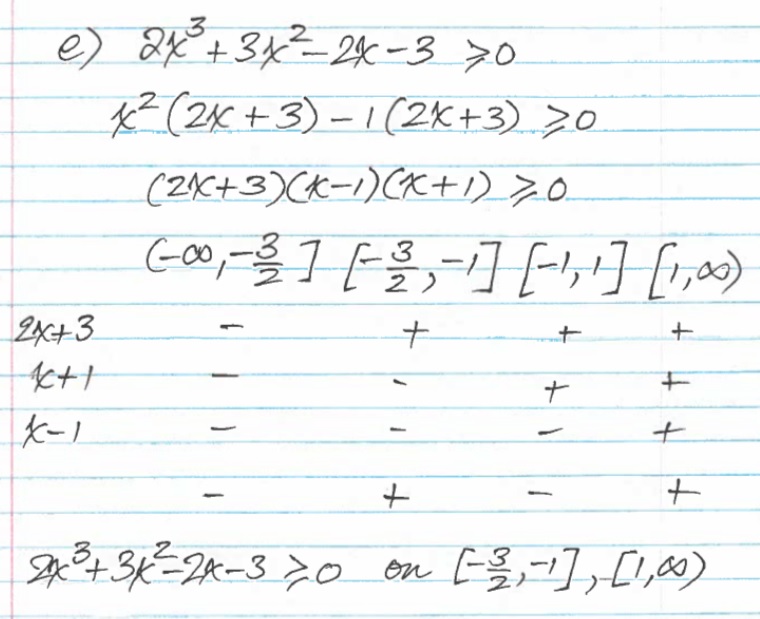 e) 2x³ + 3x² - 2x - 3 ⩾ 0
x² (2x + 3) - 1 (2x+3) ⩾ 0
(2x+3)(x-1)(x+1) ⩾ 0
(-∞, -3/2] [-3/2, -1] [-1, 1] [1, ∞)
2x+3 - + + +
x+1 - - + +
x-1 - - - +
- + - +
2x³+3x²-2x-3 ⩾ 0 on [-3/2, -1], [1, ∞)